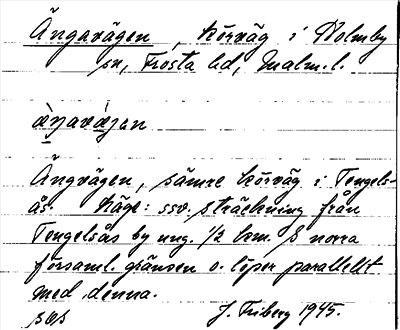 Ängavägen, körväg i Holmby
sn, Frosta hd, Malm. l.
àŋavàjən
Ängvägen, sämre körväg i Tengels-
ås. Läge: ssv. sträckning från
Tengelsås by ung. 1/2 km. S norra
församl. gränsen o. löper parallellt
med denna.
J. Friberg 1945.